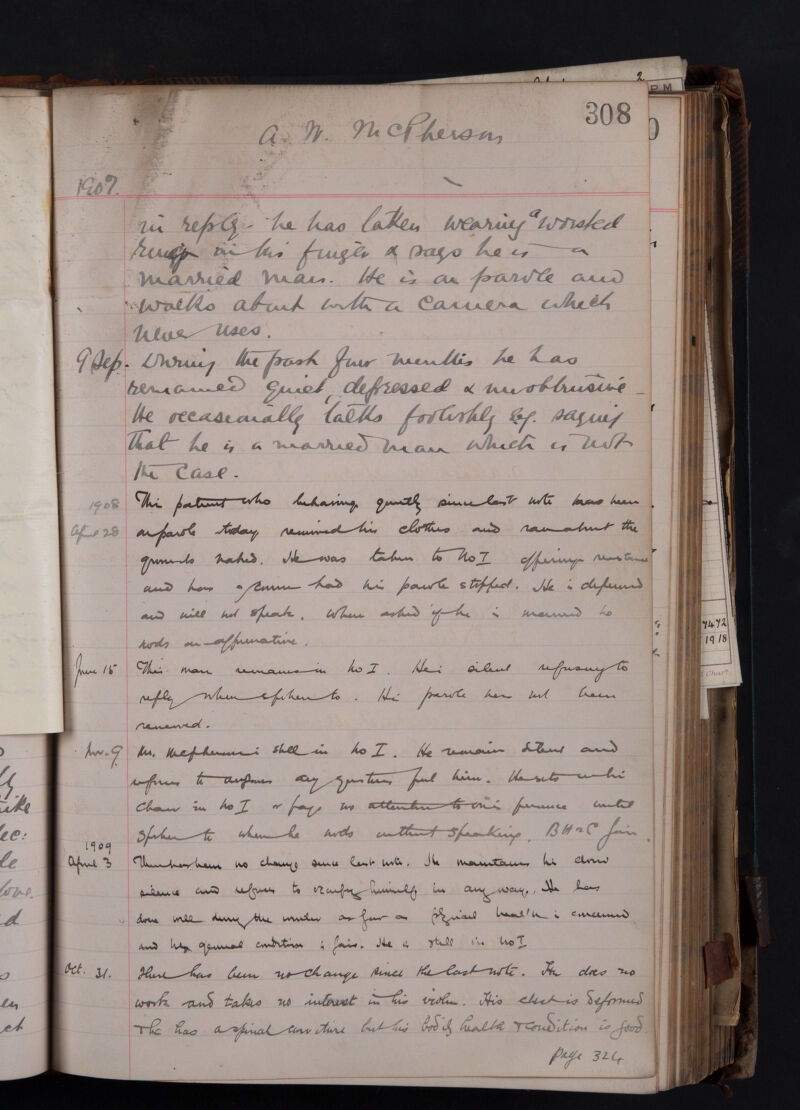 308
A. W. McPherson
1907.
in reply. he has taken wearing a worsted
ring on his finger & says he is a
married man. He is on parole and
walks about with a camera which
never uses.
9 Sep. During the past four months he has
remained quiet, depressed & unobtrusive.
He occasionally talks foolishly eg. saying
that he is a married man which is not
the case.
1908
April 28
This patient who behaving quietly since last note has been
on parole today removed his clothes and ran about the
grounds naked. He was taken to No I offering resistance
and has of course had his parole stopped. He is depressed
and will not speak. When asked if he is married he
nods an affirmative.
June 15 This man remains in No I. He is silent refusing to
reply when spoken to. His parole has not been
renewed.
Nov. 9 Mr. McPherson is still in No I. He remains silent and
refuses to answer any questions put him. He sits in his
chair in No I & pays no attention to one's presence until
spoken to when he nods without speaking. B H & C fair.
1909
April 3 There has been no change since last note. He maintains his
silence and refuses to occupy himself in any way. He has
done well during the winter as far as physical health is concerned
and his general condition is fair. He is still in No I
Oct. 31. There has been no change since the last note. He does no
work and takes no interest in his violin. His chest is deformed
& he has a spinal curvature but his bodily health & condition is good.
page 324
2
PM
7472
1918
Chart